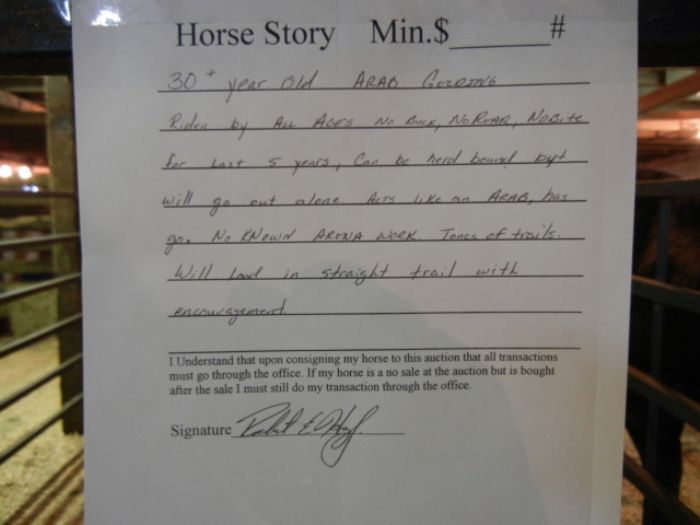 Horse Story Min.$_______#
30+ year old ARAB GELDING
Riden by ALL AGES No Buck, No REAR, No Bite
for Last 5 years, Can be herd bound but
will go out alone Acts like an ARAB, has
go. No KNOWN ARENA WORK. Tones of trails.
Will Load in straight trail with
encouragement
I Understand that upon consigning my horse to this auction that all transactions
must go through the office. If my horse is a no sale at the auction but is bought
after the sale I must still do my transaction through the office.
Signature